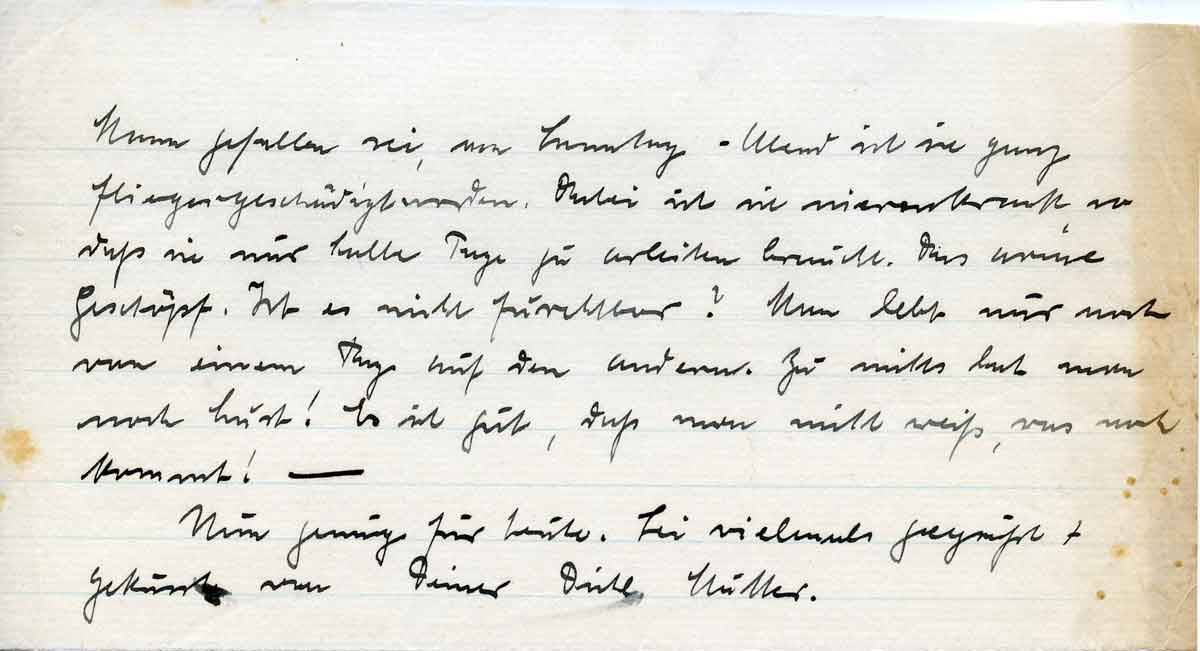 Mann gefallen sei, am Sonntag-Abend ist sie ganz
fliegergeschädigt worden. Dabei ist sie nierenkrank, so
daß sie nur halbe Tage zu arbeiten braucht. Das arme
Geschöpf. Ist es nicht furchtbar? Man lebt nur noch
von einem Tag auf den andern. Zu nichts hat man
noch Lust! Es ist gut, daß man nicht weiß, was noch
kommt! —
Nun genug für heute. Sei vielmals gegrüßt +
geküsst von Deiner Mutter.